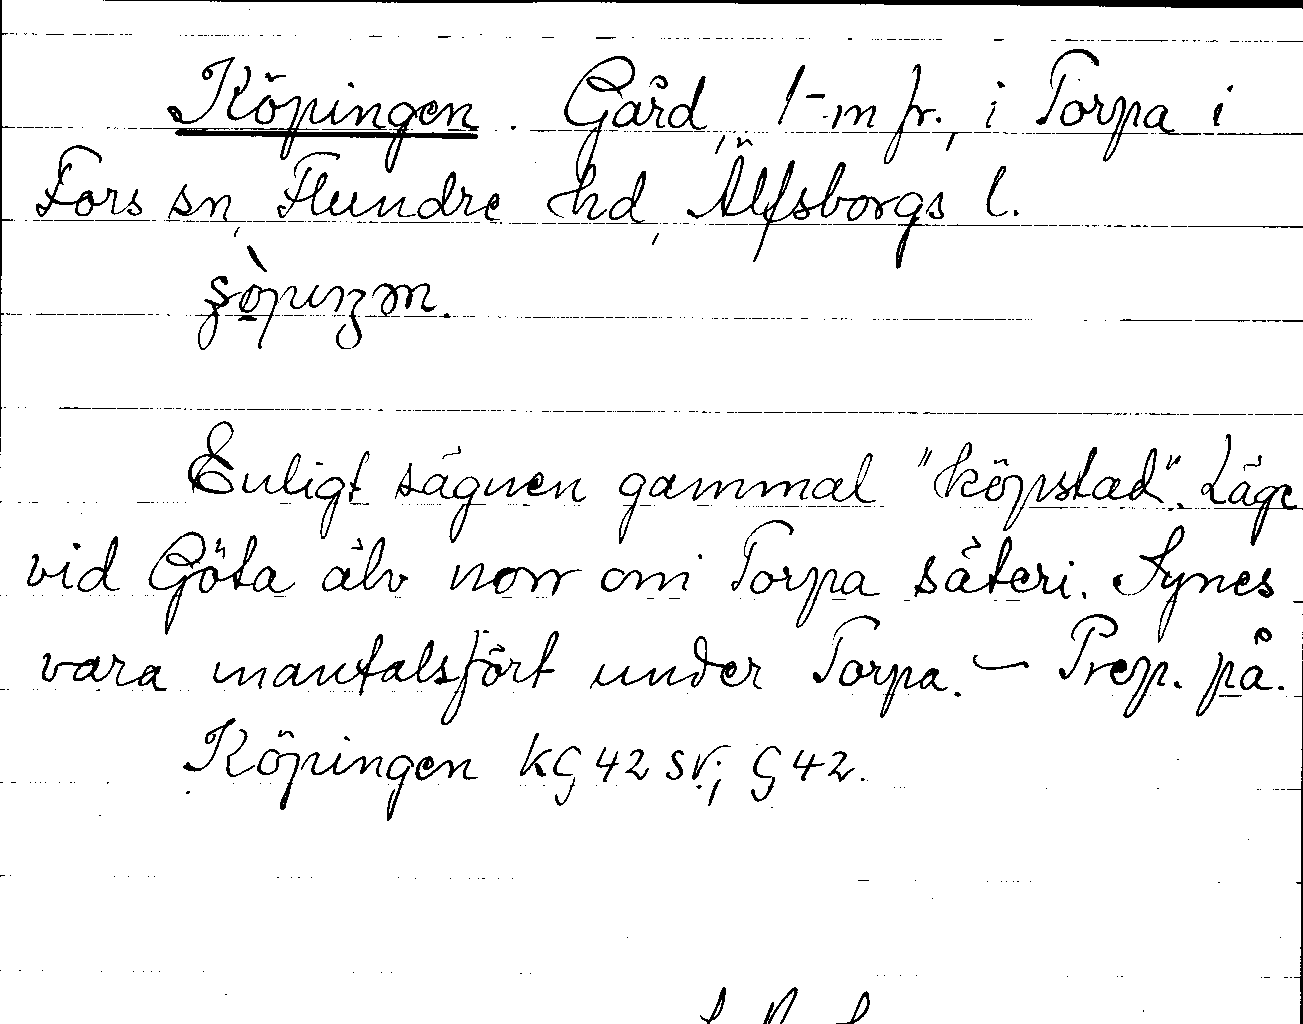 Köpingen. Gård, 1-m fr., i Torpa i
Fors sn, Flundre hd, Älfsborgs l.
Enligt sägnen gammal "köpstad". Läge
vid Göta älv norr om Torpa säteri. Synes
vara mantalsfört under Torpa. – Prep. på.
Köpingen KG 42 sv.; G 42.